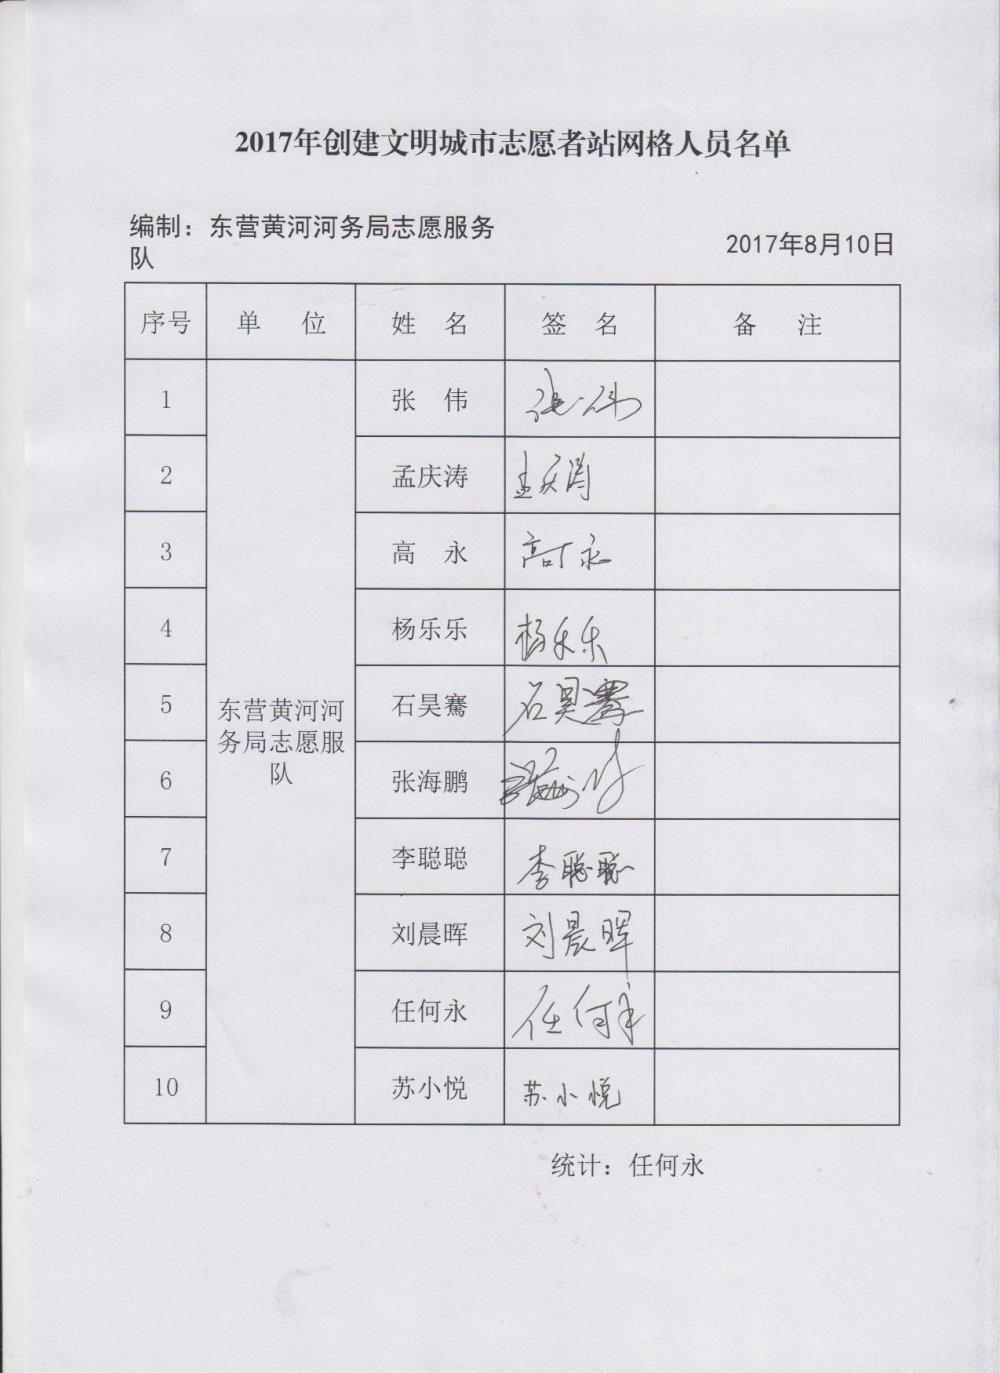 2017年创建文明城市志愿者站网格人员名单
编制：东营黄河河务局志愿服务
队
2017年8月10日
序号 单 位 姓 名 签 名 备 注
1 张 伟 张伟
2 孟庆涛 孟庆涛
3 高 永 高永
4 杨乐乐 杨乐乐
东营黄河河
务局志愿服
队
5 石昊骞 石昊骞
6 张海鹏 张海鹏
7 李聪聪 李聪聪
8 刘晨晖 刘晨晖
9 任何永 任何永
10 苏小悦 苏小悦
统计：任何永